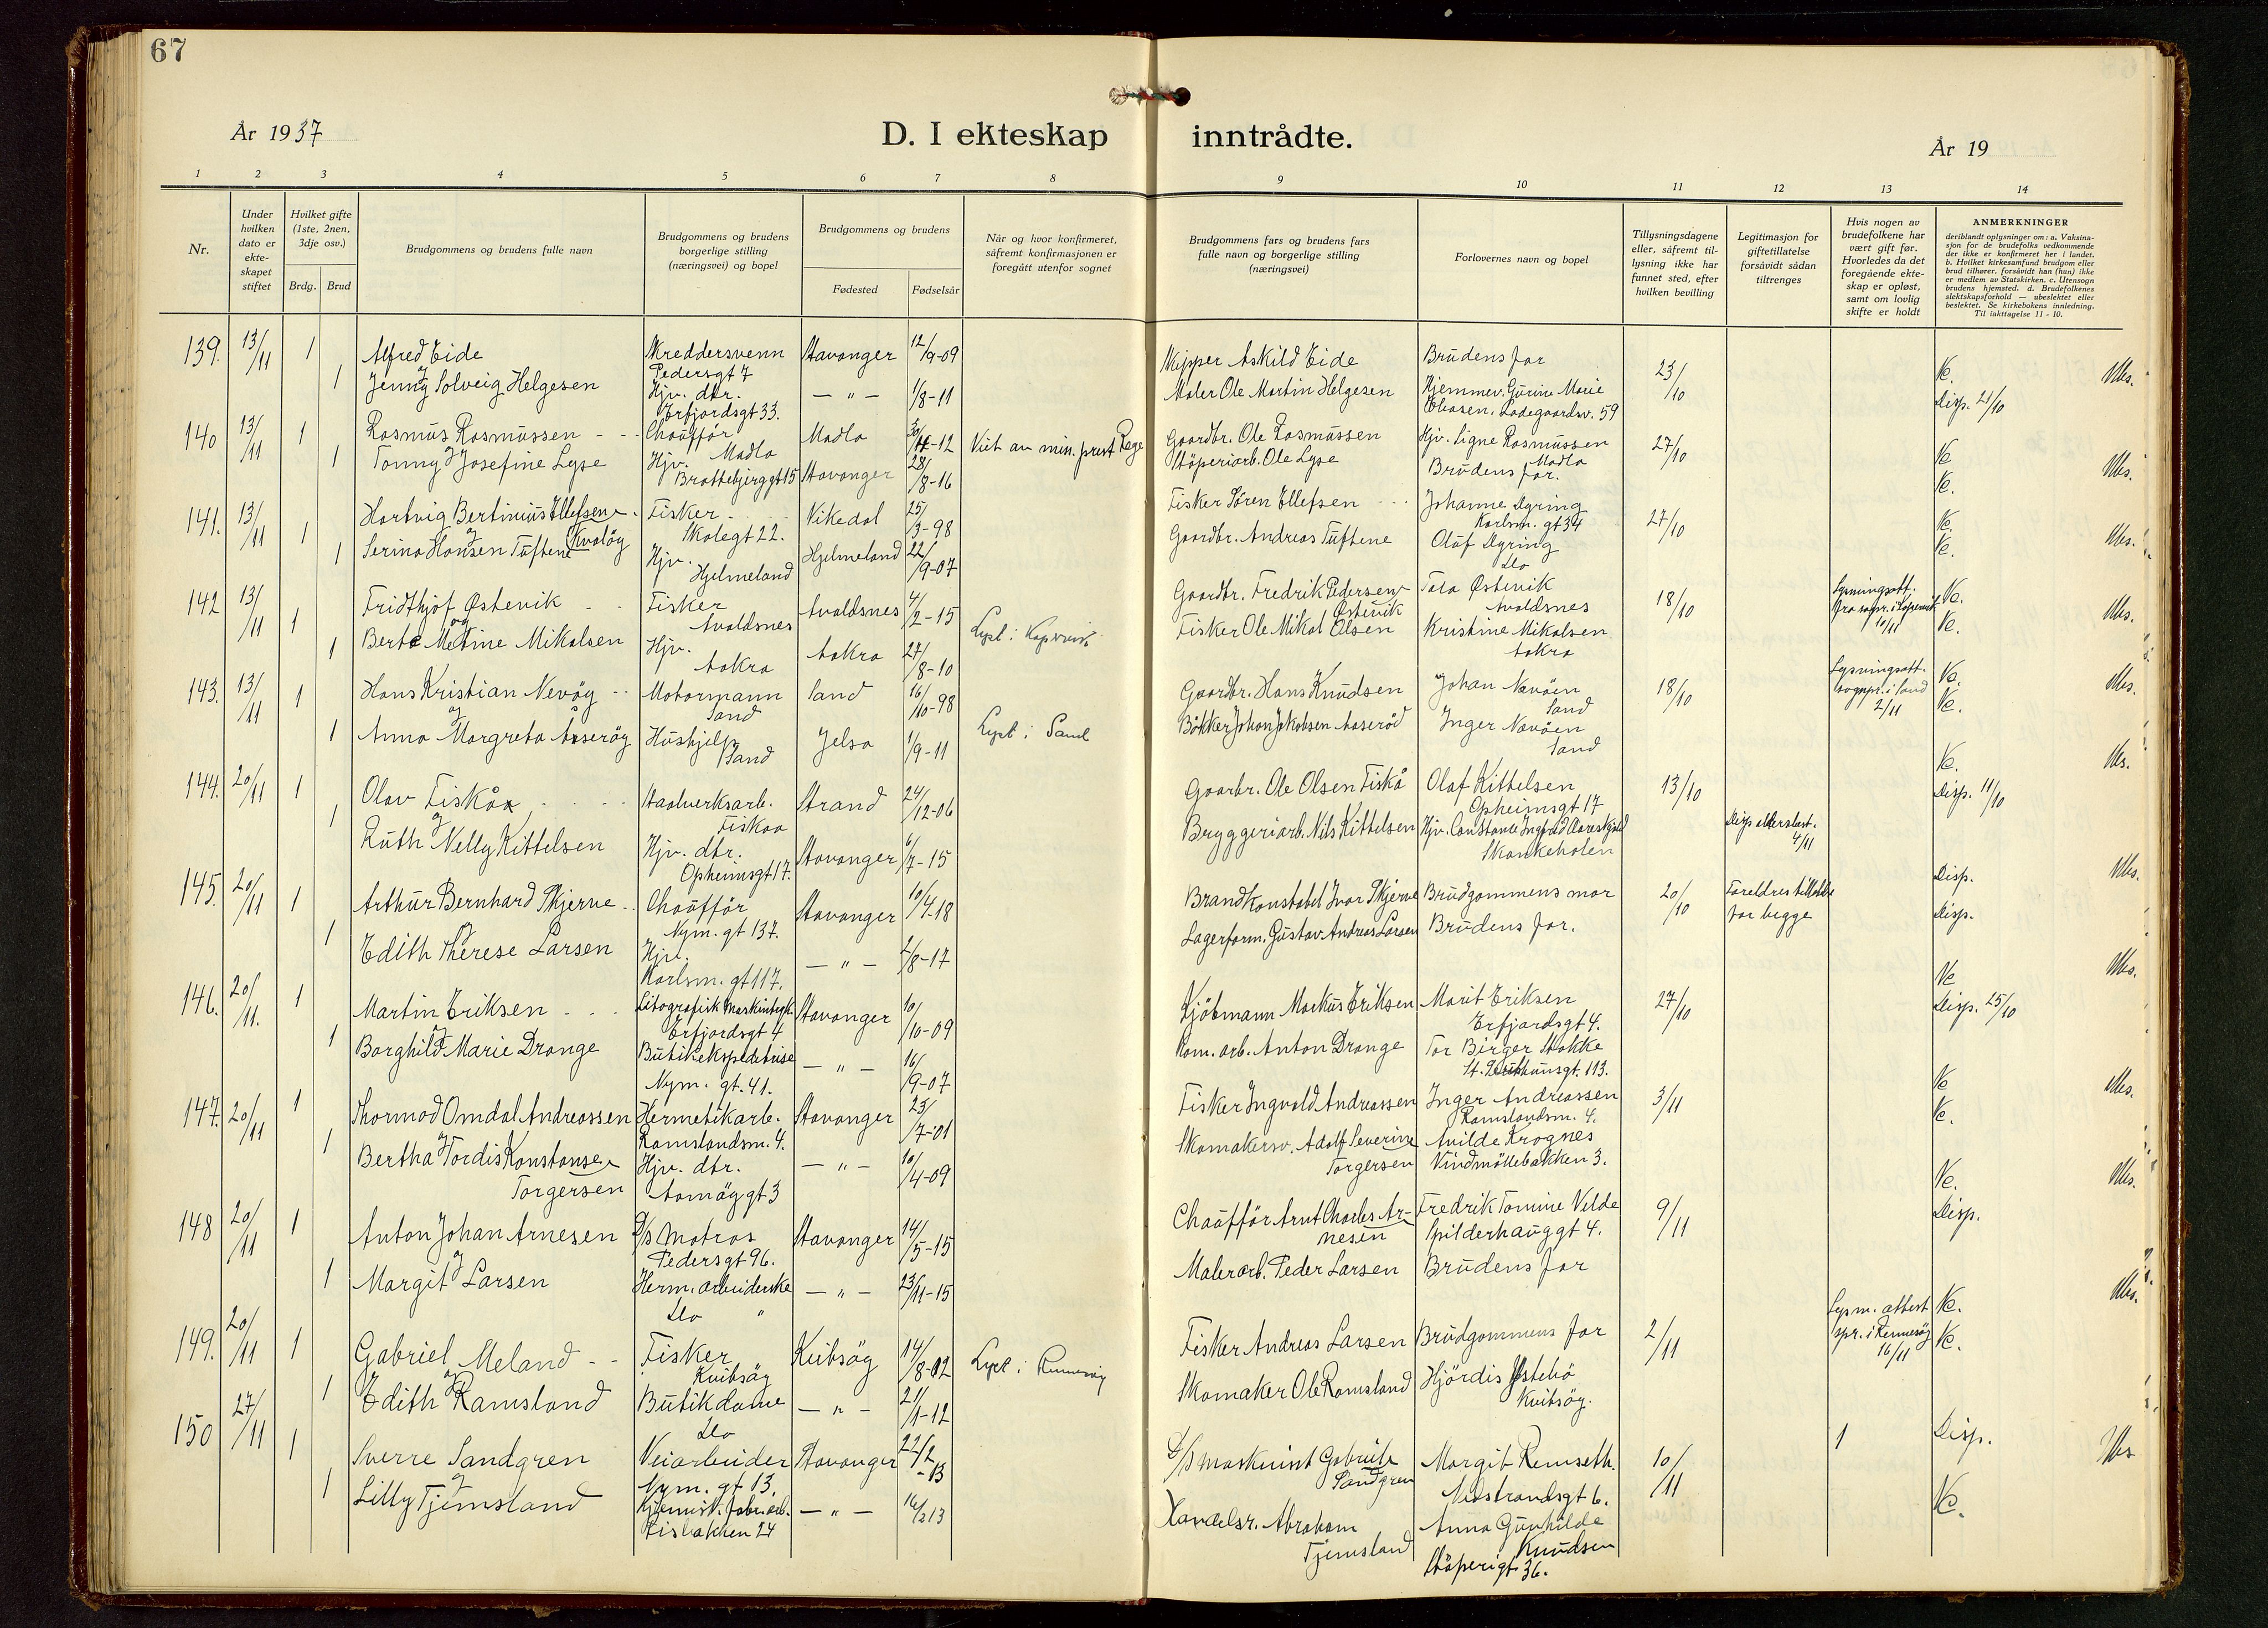 67
År 1937
D. I ekteskap inntrådte.
År 19
1 2 3 4 5 6 7 8 9 10 11 12 13 14
Nr.
Under hvilken dato er ekte-skapet stiftet
Hvilket gifte (1ste, 2nen, 3dje osv.)
Brdg. Brud
Brudgommens og brudens fulle navn
Brudgommens og brudens borgerlige stilling (næringsvei) og bopel
Brudgommens og brudens
Fødested
Fødselsår
Når og hvor konfirmeret, såfremt konfirmasjonen er foregått utenfor sognet
Brudgommens fars og brudens fars fulle navn og borgerlige stilling (næringsvei)
Forlovernes navn og bopel
Tillysningsdagene eller, såfremt til-lysning ikke har funnet sted, efter hvilken bevilling
Legitimasjon for giftetillatelse forsåvidt sådan tiltrenges
Hvis nogen av brudefolkene har vært gift før. Hvorledes da det foregående ekte-skap er opløst, samt om lovlig skifte er holdt
ANMERKNINGER
deriblandt oplysninger om: a. Vaksina-sjon for de brudefolks vedkommende der ikke er konfirmeret her i landet. b. Hvilket kirkesamfund brudgom eller brud tilhører, forsåvidt han (hun) ikke er medlem av Statskirken. c. Utensogn brudens hjemsted. d. Brudefolkenes slektskapsforhold — ubeslektet eller beslektet. Se kirkebokens innledning. Til iakttagelse 11 - 10.
139. 13/11 1 Alfred Eide Skreddersvenn Pedersgt 7 Stavanger 12/9-09 Skipper Askild Eide Brudens far 23/10 Ve.
og
1 Jenny Solveig Helgesen Hjv. dtr. Erfjordsgt 33. — " — 1/8-11 Maler Ole Martin Helgesen Hjemmev. Gurine Marie Ladegaardsv. 59 Disp. 21/10
140 13/11 1 Rasmus Rasmussen Chauffør Madla Madla -12 Viet av min. prest Gaardbr. Ole Rasmussen Hjv. Signe Rasmussen Madla 27/10 Ve
og
1 Tonny Josefine Lyse Hjv. Brattebjerggt 15 Stavanger 28/8-16 Støperiarb. Ole Lyse Brudens far. Ve.
141. 13/11 1 Hartvig Bertinius Ellefsen Kvaløy Fisker Skolegt 22. Vikedal 25/3-98 Fisker Søren Ellefsen Johanne Karlsm. gt 34 27/10 Ve.
og
1 Serina Hansen Tuftene Hjv. Hjelmeland Hjelmeland 22/9-07 Gaardbr. Andreas Tuftene Olaf Do Ve.
142 13/11 1 Fridthjof Østevik Fisker Avaldsnes Avaldsnes 4/2-15 Lyst i Gaardbr. Fredrik Pedersen Østevik Østevik Avaldsnes 18/10 Lysningsatt. 10/11 Ve.
og
1 Berte Metine Mikalsen Hjv. Aakra Aakra 27/8-10 Fisker Ole Mikal Olsen Kristine Mikalsen Aakra Ve.
143. 13/11 1 Hans Kristian Nevøy Motormann Sand Sand 16/10-98 Lyst i Sand Gaardbr. Hans Knudsen Johan Nevøen Sand 18/10 Lysningsatt. sognpr. i Sand 2/11 Ve.
og
1 Anna Margreta Åserøy Hushjelp Sand Jelsa 1/9-11 Bøkker Johan Jakobsen Aaserød Inger Nevøen Sand Ve.
144. 20/11 1 Olav Fiskå Staalverksarb. Fiskaa Strand 24/12-06 Gaarbr. Ole Olsen Fiskå Olaf Kittelsen Opheimsgt 17 13/10 Ve.
og
1 Ruth Nelly Kittelsen Hjv. dtr. Opheimsgt 17. Stavanger 6/7-15 Bryggeriarb. Nils Kittelsen Hjv. Constance Ingfrid Skankeholen 4/11 Disp. 11/10
145. 20/11 1 Arthur Bernhard Skjerve Chauffør Nym. gt 137. Stavanger 10/4-18 Brandkonstabel Ivar Skjerve Brudgommens mor 20/10 Foreldres tillatelse for begge Disp.
og
1 Edith Therese Larsen Hjv. Karlsm. gt 117. — " — 2/8-17 Lagerform. Gustav Andreas Larsen Brudens far. Disp.
146. 20/11. 1 Martin Eriksen Litografisk Erfjordsgt 4 Stavanger 10/10-09 Kjøbmann Markus Eriksen Marit Eriksen Erfjordsgt 4. 27/10 Ve
og
1 Borghild Marie Drange Butikekspeditrise Nym. gt. 41. — " — 16/9-07 Kom. arb. Anton Drange Tor Birger Stokke 113. Disp. 25/10
147. 20/11 1 Thormod Omdal Andreassen Hermetikarb. Ramslandsm. 4. Stavanger 23/7-01 Fisker Ingvald Andreassen Inger Andreassen Ramslandsm. 4. 3/11 Ve
og
1 Bertha Tordis Konstanse Torgersen Hjv. dtr. Aamøygt 3 — " — 10/4-09 Skomakersv. Adolf Severin Torgersen Avilde Krognes Vindmøllebakken 3. Ve.
148 20/11 1 Anton Johan Arnesen D/S Matros Pedersgt 96. Stavanger 14/5-15 Chauffør Arnt Charles Arnesen Fredrik Tomine Velde Spilderhauggt 4. 9/11 Ve.
og
1 Margit Larsen Herm. arbeiderske Do " — " — 23/11-15 Malerarb. Peder Larsen Brudens far Disp.
149. 20/11 1 Gabriel Meland Fisker Kvitsøy Kvitsøy 14/8-02 Lyst i Rennesøy Fisker Andreas Larsen Brudgommens far 2/11 Lysn. attest spr. i Rennesøy 16/11 Ve.
og
1 Edith Ramsland Butikdame Do — " — 21/1-12 Skomaker Ole Ramsland Hjördis Kvitsøy. Ve.
150 27/11 1 Sverre Sandgren Veiarbeider Nym. gt 13. Stavanger 22/2-13 D/S maskinist Gabriel Sandgren Margit Remseth. Nedstrandsgt 6. 10/11 1 Disp.
og
1 Lilly Tjemsland Kjemisk. fabr. arb. 24 — " — Handelsr. Abraham Tjemsland Anna Gunhilde Knudsen Støperigt 36. Ve.